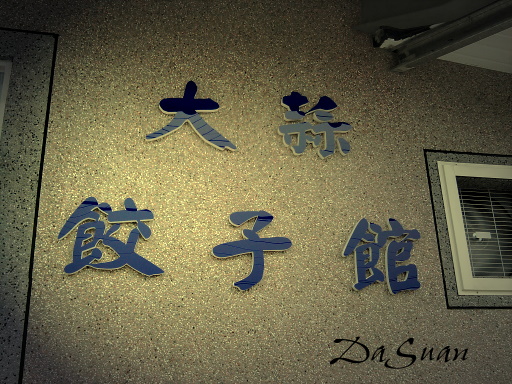 大蒜
餃子館
DaSuan